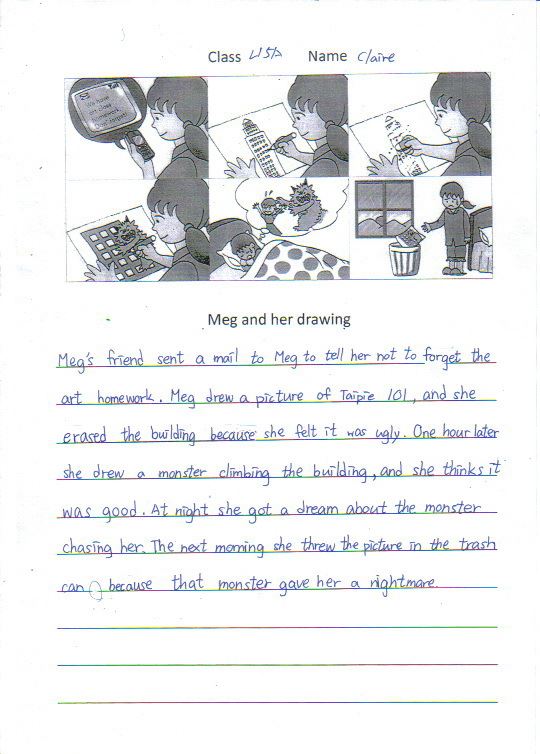 Class L15A Name Claire
We have
art class
homework.
Don't forget!
Meg and her drawing
Meg's friend sent a mail to Meg to tell her not to forget the
art homework. Meg drew a picture of Taipie 101, and she
erased the building because she felt it was ugly. One hour later
she drew a monster climbing the building, and she thinks it
was good. At night she got a dream about the monster
chasing her. The next morning she threw the picture in the trash
can because that monster gave her a nightmare.